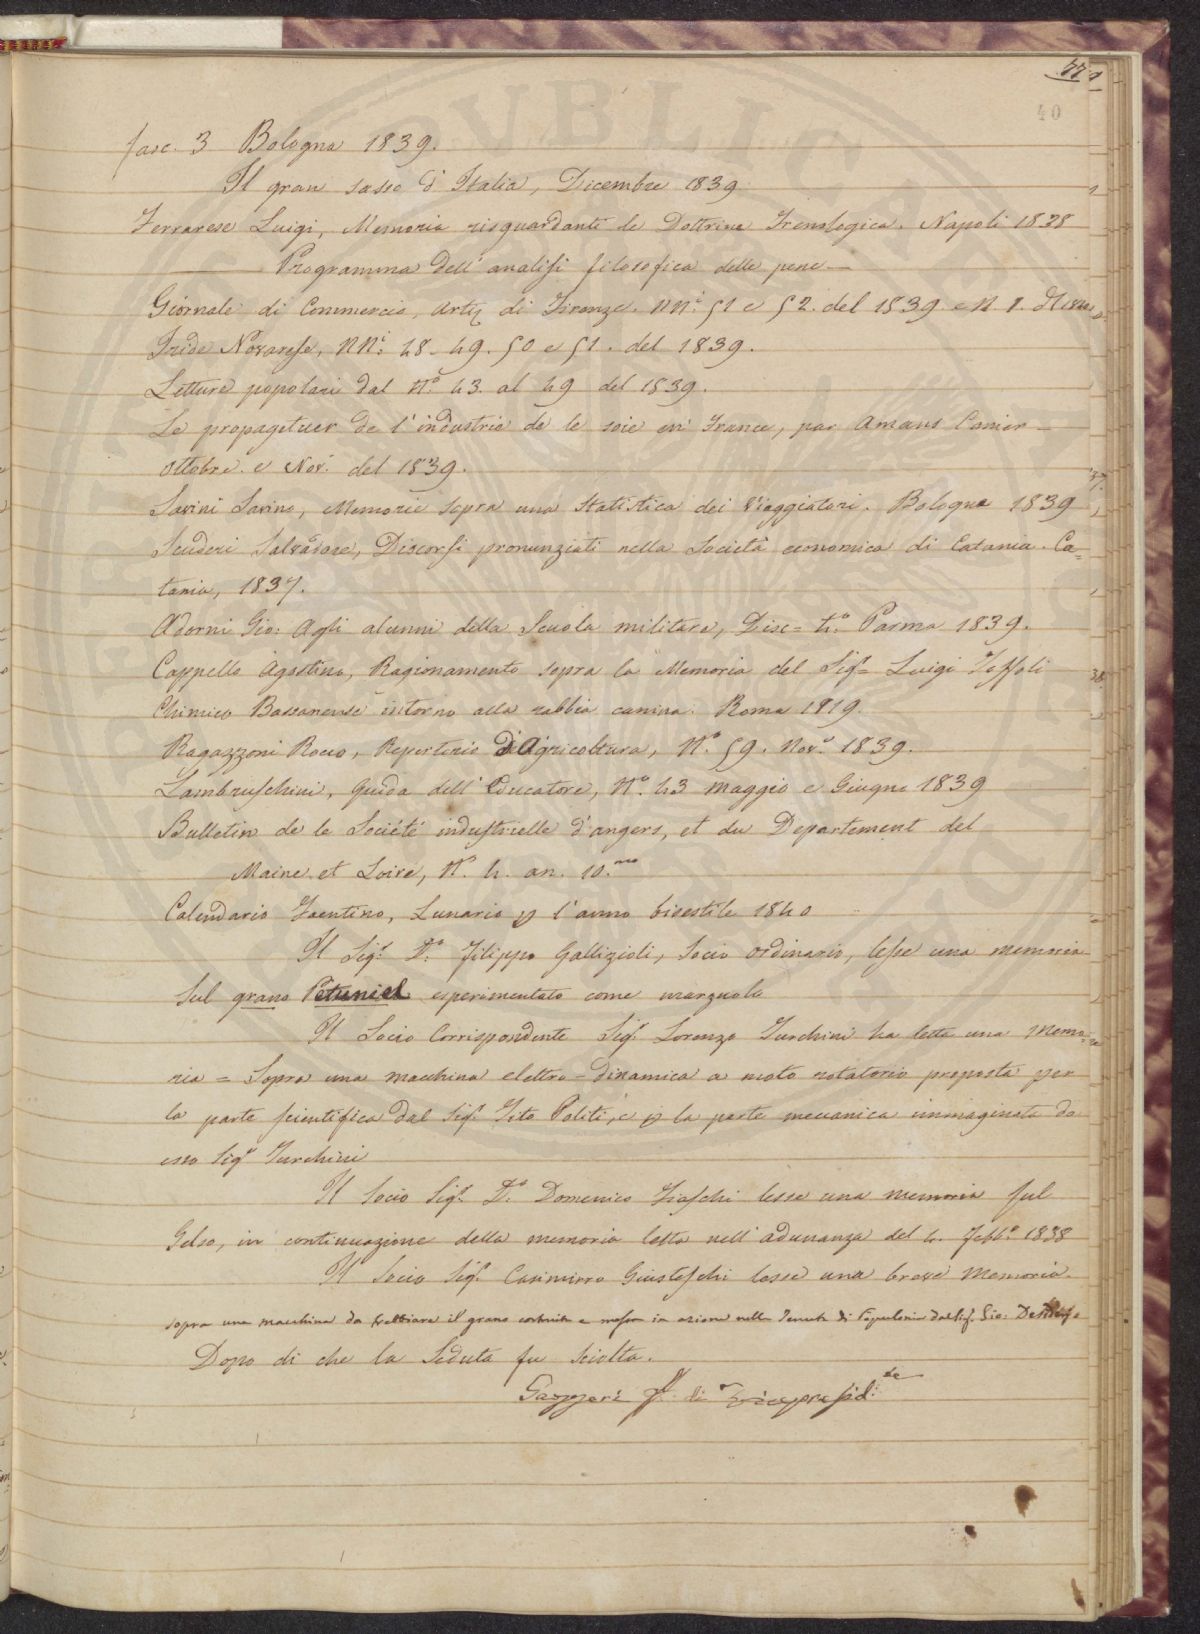 77
40
fasc. 3 Bologna 1839.
Il gran sasso d'Italia, Dicembre 1839
Ferrarese Luigi, Memorie risguardanti le Dottrina Frenologica. Napoli 1838
Programma dell'analisi filosofica delle pene—
Giornale di Commercio, Arti di Firenze. NN.i 51 e 52. del 1839. e N. 1.
Iride Novarese, NN.i 48. 49. 50 e 51. del 1839.
Letture popolari dal N.o 43. al 49 del 1839.
Le propagetuer de l'industrie de le soie en France, par Amans Carrier—
ottobre. e Nov.e del 1839.
Savini Savino, Memorie sopra una Statistica dei Viaggiatori. Bologna 1839
Scuderi Salvadore, Discorsi pronunziati nella Società economica di Catania. Ca=
tania, 1837.
Adorni Gio: Agli alunni della Scuola militare, Disc= 4.o Parma 1839.
Cappello Agostino, Ragionamento sopra la Memoria del Sig.r Luigi Toffoli
Chimico Bassanense intorno alla rabbia canina. Roma 1819.
Ragazzoni Rocco, Repertorio d'Agricoltura, N.o 59. Nov.e 1839.
Lambruschini, Guida dell'Educatore, N.o 43 Maggio e Giugno 1839
Bulletin de le Société industrielle d'angers, et du Departement del
Maine et Loire, N.o 4. an. 10.mo
Calendario Faentino, Lunario p l'anno bisestile 1840
Il Sig.r D.r Filippo Gallizioli, Socio ordinario, lesse una memoria
sul grano Petaniel esperimentato come marzuolo
Il Socio Corrispondente Sig.r Lorenzo Turchini ha letto una Memo=
ria = Sopra una macchina elettro=dinamica a moto rotatorio proposta per
la parte scientifica dal Sig.r Tito Politi, e p la parte meccanica immaginata da
esso Sig.r Turchini
Il Socio Sig.r D.r Domenico Fraschi lesse una memoria sul
Gelso, in continuazione della memoria letta nell'adunanza del 4. Febb.o 1838
Il Socio Sig.r Casimirro Giusteschi lesse una breve Memoria
sopra una macchina da trebbiare il grano costruita e messa in azione nella Tenuta di Populonia dal Sig. Gio:
Dopo di che la Seduta fu sciolta.
Gazzeri f. di Vicepresid.te